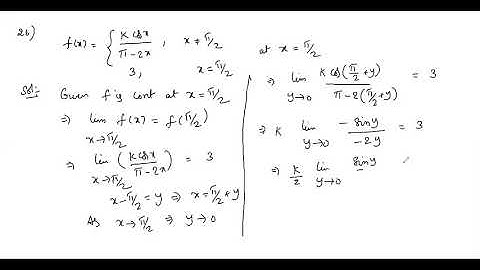 26)
f(x) = { K cosx / π-2x , x ≠ π/2
3, x = π/2
at x = π/2
Sol: Given f is cont at x = π/2
⇒ lim x→π/2 f(x) = f(π/2)
⇒ lim x→π/2 (K cosx / π-2x) = 3
x-π/2 = y ⇒ x = π/2 + y
As x→π/2 ⇒ y→0
⇒ lim y→0 K cos(π/2 + y) / π-2(π/2 + y) = 3
⇒ K lim y→0 -siny / -2y = 3
⇒ K/2 lim y→0 siny